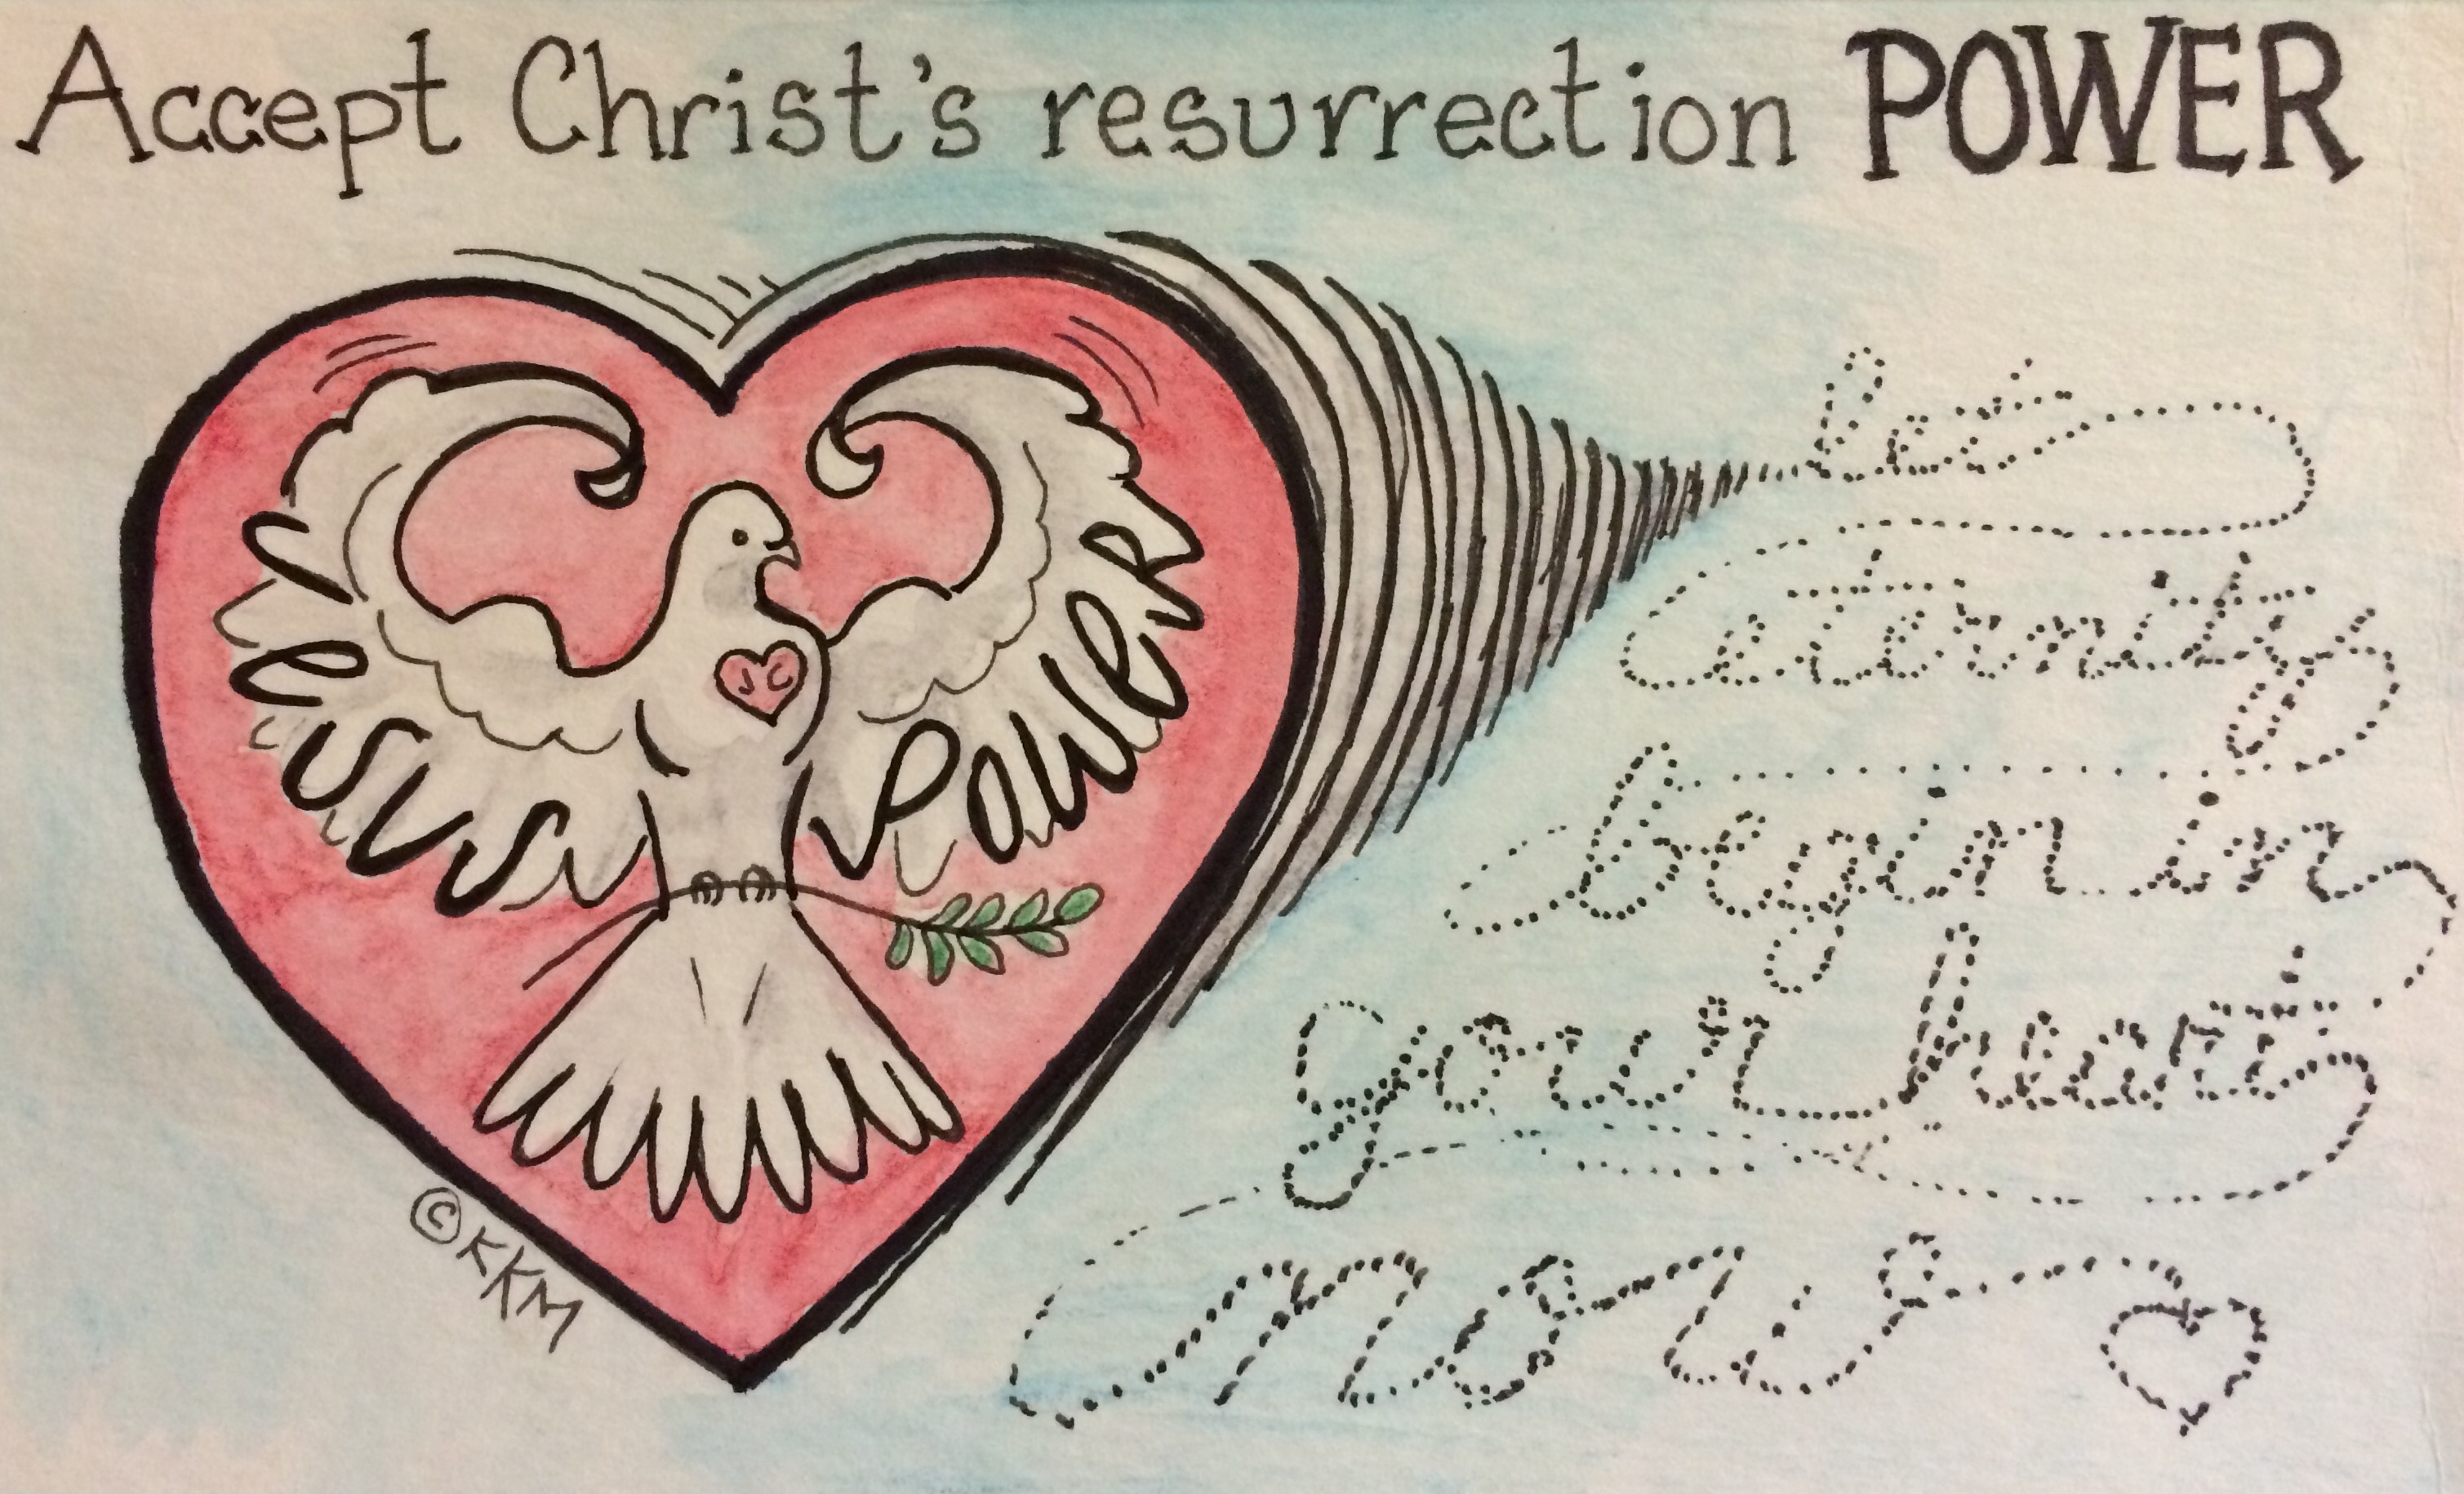 Accept Christ's resurrection POWER
Jesus
Power
JC
let
eternity
begin in
your heart
now
©KKM